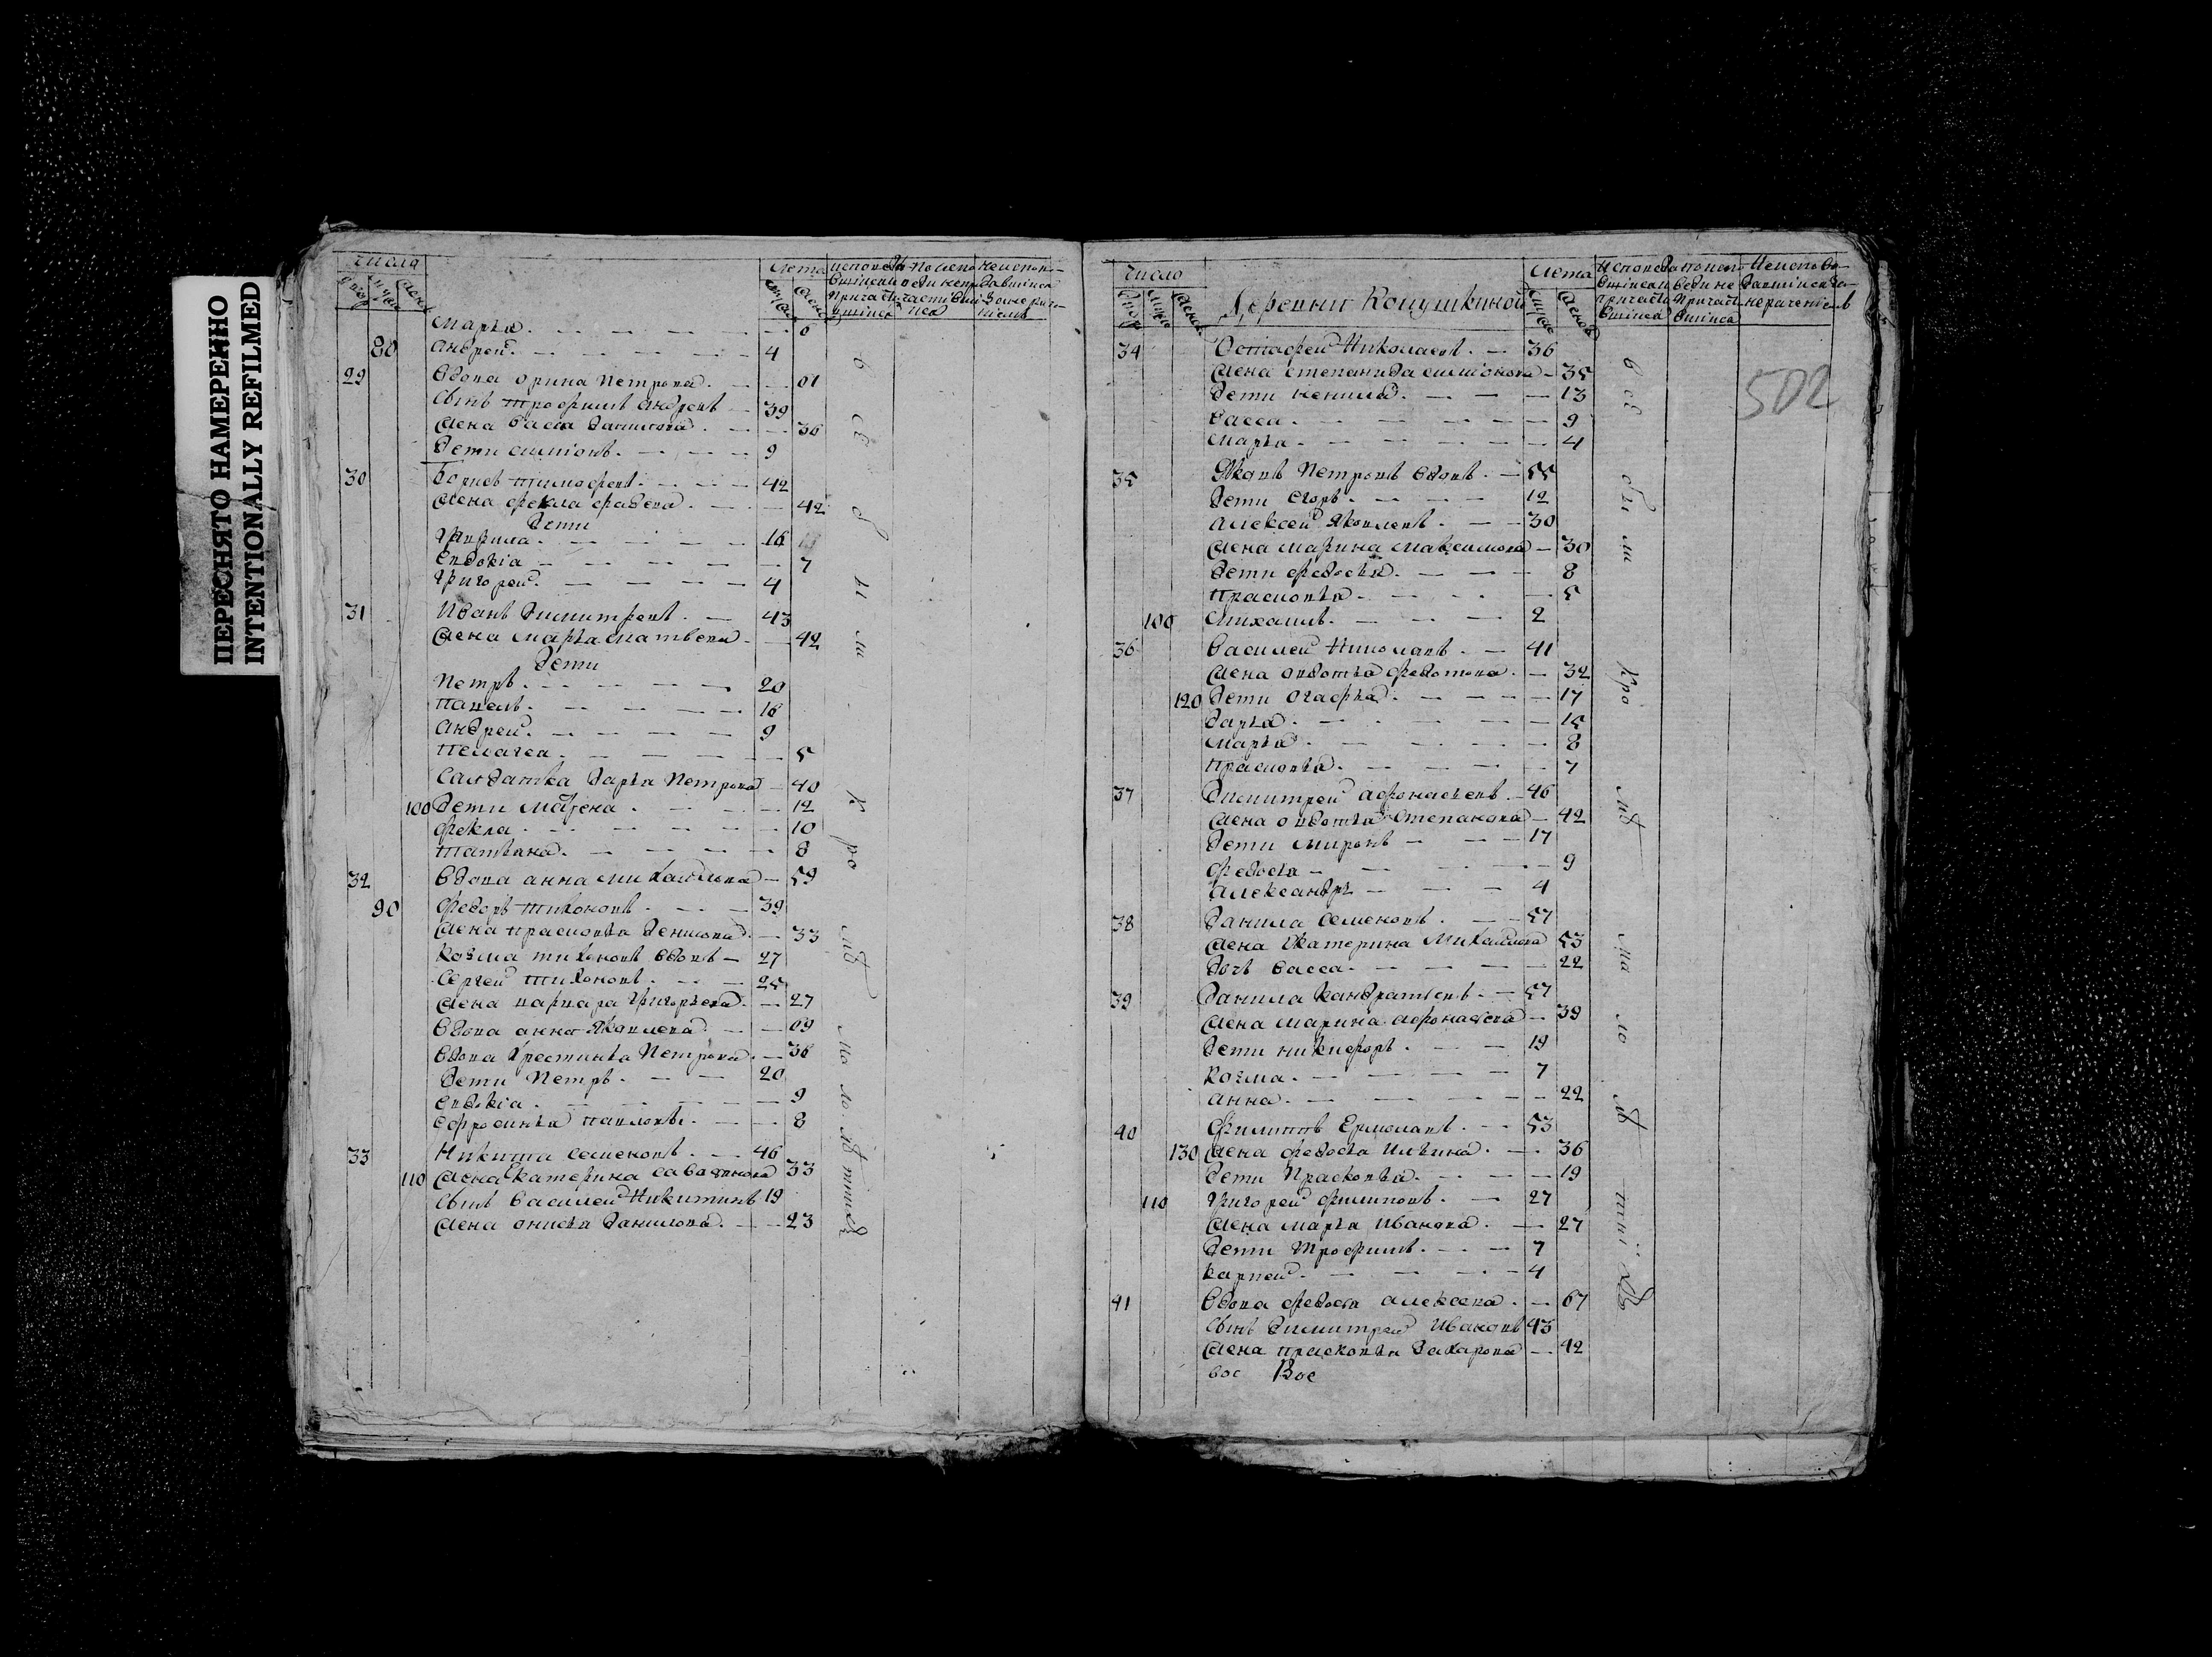 ПЕРЕСНЯТО НАМЕРЕННО
INTENTIONALLY REFILMED
число лета
Марѳа 0
80 Андрей 4
29 Вдова Орина Петрова 61
Сынъ Трофимъ Андреевъ 39
Жена Васса Данилова 36
Дети Симіонъ 9
30 Борисъ Тимофеевъ 42
Жена Фекла Фадеева 42
Дети
Гаврила 16
Евдокіа 7
Григорей 4
31 Иванъ Димитреевъ 43
Жена Марѳа Матвеева 42
Дети
Петръ 20
Павелъ 16
Андрей 9
Пелагеа 5
Салдатка Дарьа Петрова 40
100 Дети Матрена 12
Фекла 10
Татьана 8
32 Вдова Анна Михайлова 59
90 Федоръ Тихоновъ 39
Жена Прасковьа Денисова 33
Козма Тихоновъ вдовъ 27
Сергей Тихоновъ 25
Жена Варвара Григорьева 27
Вдова Анна Яковлева 69
Вдова Христиньа Петрова 36
Дети Петръ 20
Евдокіа 9
Ефросиньа Павловы 8
33 Никита Семеновъ 46
110 Жена Катерина Савастинова 33
Сынъ Василей Никитинъ 19
Жена Онисьа Данилова 23
всѣ были кромѣ малолѣтныхъ
число Деревни Кокушкиной лета
502
34 Остафей Николаевъ 36
Жена Степанида Симіонова 35
Дети Ненила 13
Васса 9
Марьа 4
35 Яковъ Петровъ вдовъ 55
Дети Егоръ 12
Алексей Яковлевъ 30
Жена Марина Максимова 30
Дети Федосьа 8
Прасковьа 5
100 Михаилъ 2
36 Василей Николаевъ 41
Жена Овдотьа Федотова 32
120 Дети Огафьа 17
Дарьа 15
Марьа 8
Прасковьа 7
37 Димитрей Афонасьевъ 46
Жена Овдотьа Степанова 42
Дети Миронъ 17
Федосьа 9
Александръ 4
38 Данила Семеновъ 57
Жена Катерина Михайлова 53
Дочь Васса 22
39 Данила Кандратьевъ 57
Жена Марина Афонасьева 39
Дети Никифоръ 19
Козма 7
Анна 22
40 Филиппъ Ермолаевъ 53
130 Жена Федосьа Ильина 36
Дети Прасковьа 19
110 Григорей Филиповъ 27
Жена Марьа Иванова 27
Дети Трофимъ 7
Карпей 4
41 Вдова Федосьа Алексеева 67
Сынъ Димитрей Ивановъ 43
Жена Прасковьа Захарова 42
вос Вос
всѣ были кромѣ малолѣтныхъ